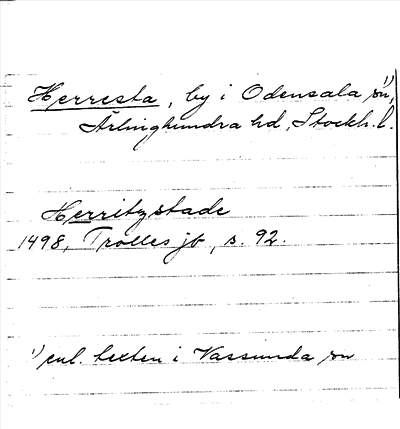 Herresta, by i Odensala sn, 1)
Ärlinghundra hd, Stockh. l.
Herritzstade
1498, Trolles jb, s. 92.
1) enl. texten i Vassunda sn